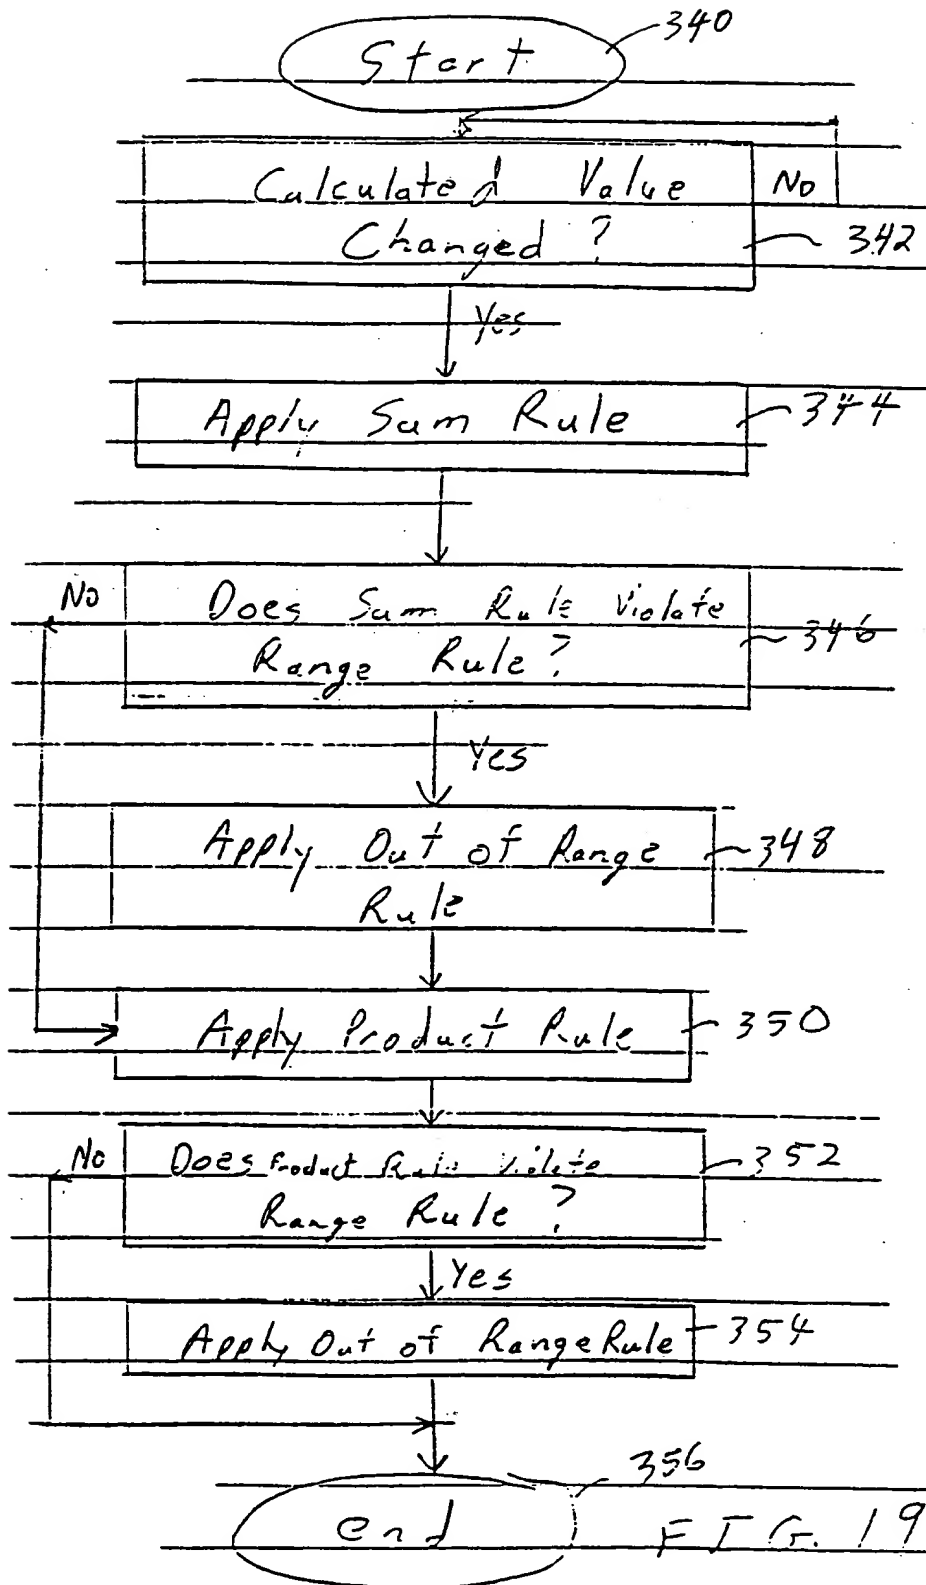 Start 340
Calculated Value No
Changed ? 342
Yes
Apply Sum Rule 344
No Does Sum Rule Violate
Range Rule ? 346
Yes
Apply Out of Range 348
Rule
Apply Product Rule 350
No Does Product Rule Violate 352
Range Rule ?
Yes
Apply Out of Range Rule 354
356
end FIG. 19